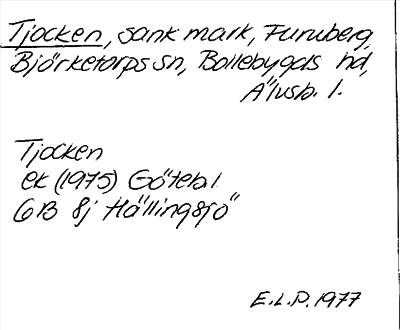 Tjocken, sank mark, Furuberg,
Björketorps sn, Bollebygds hd,
Älvsb. l.
Tjocken
ek (1975) Göteb l
6B 8j Hällingsjö
E.L.P. 1977